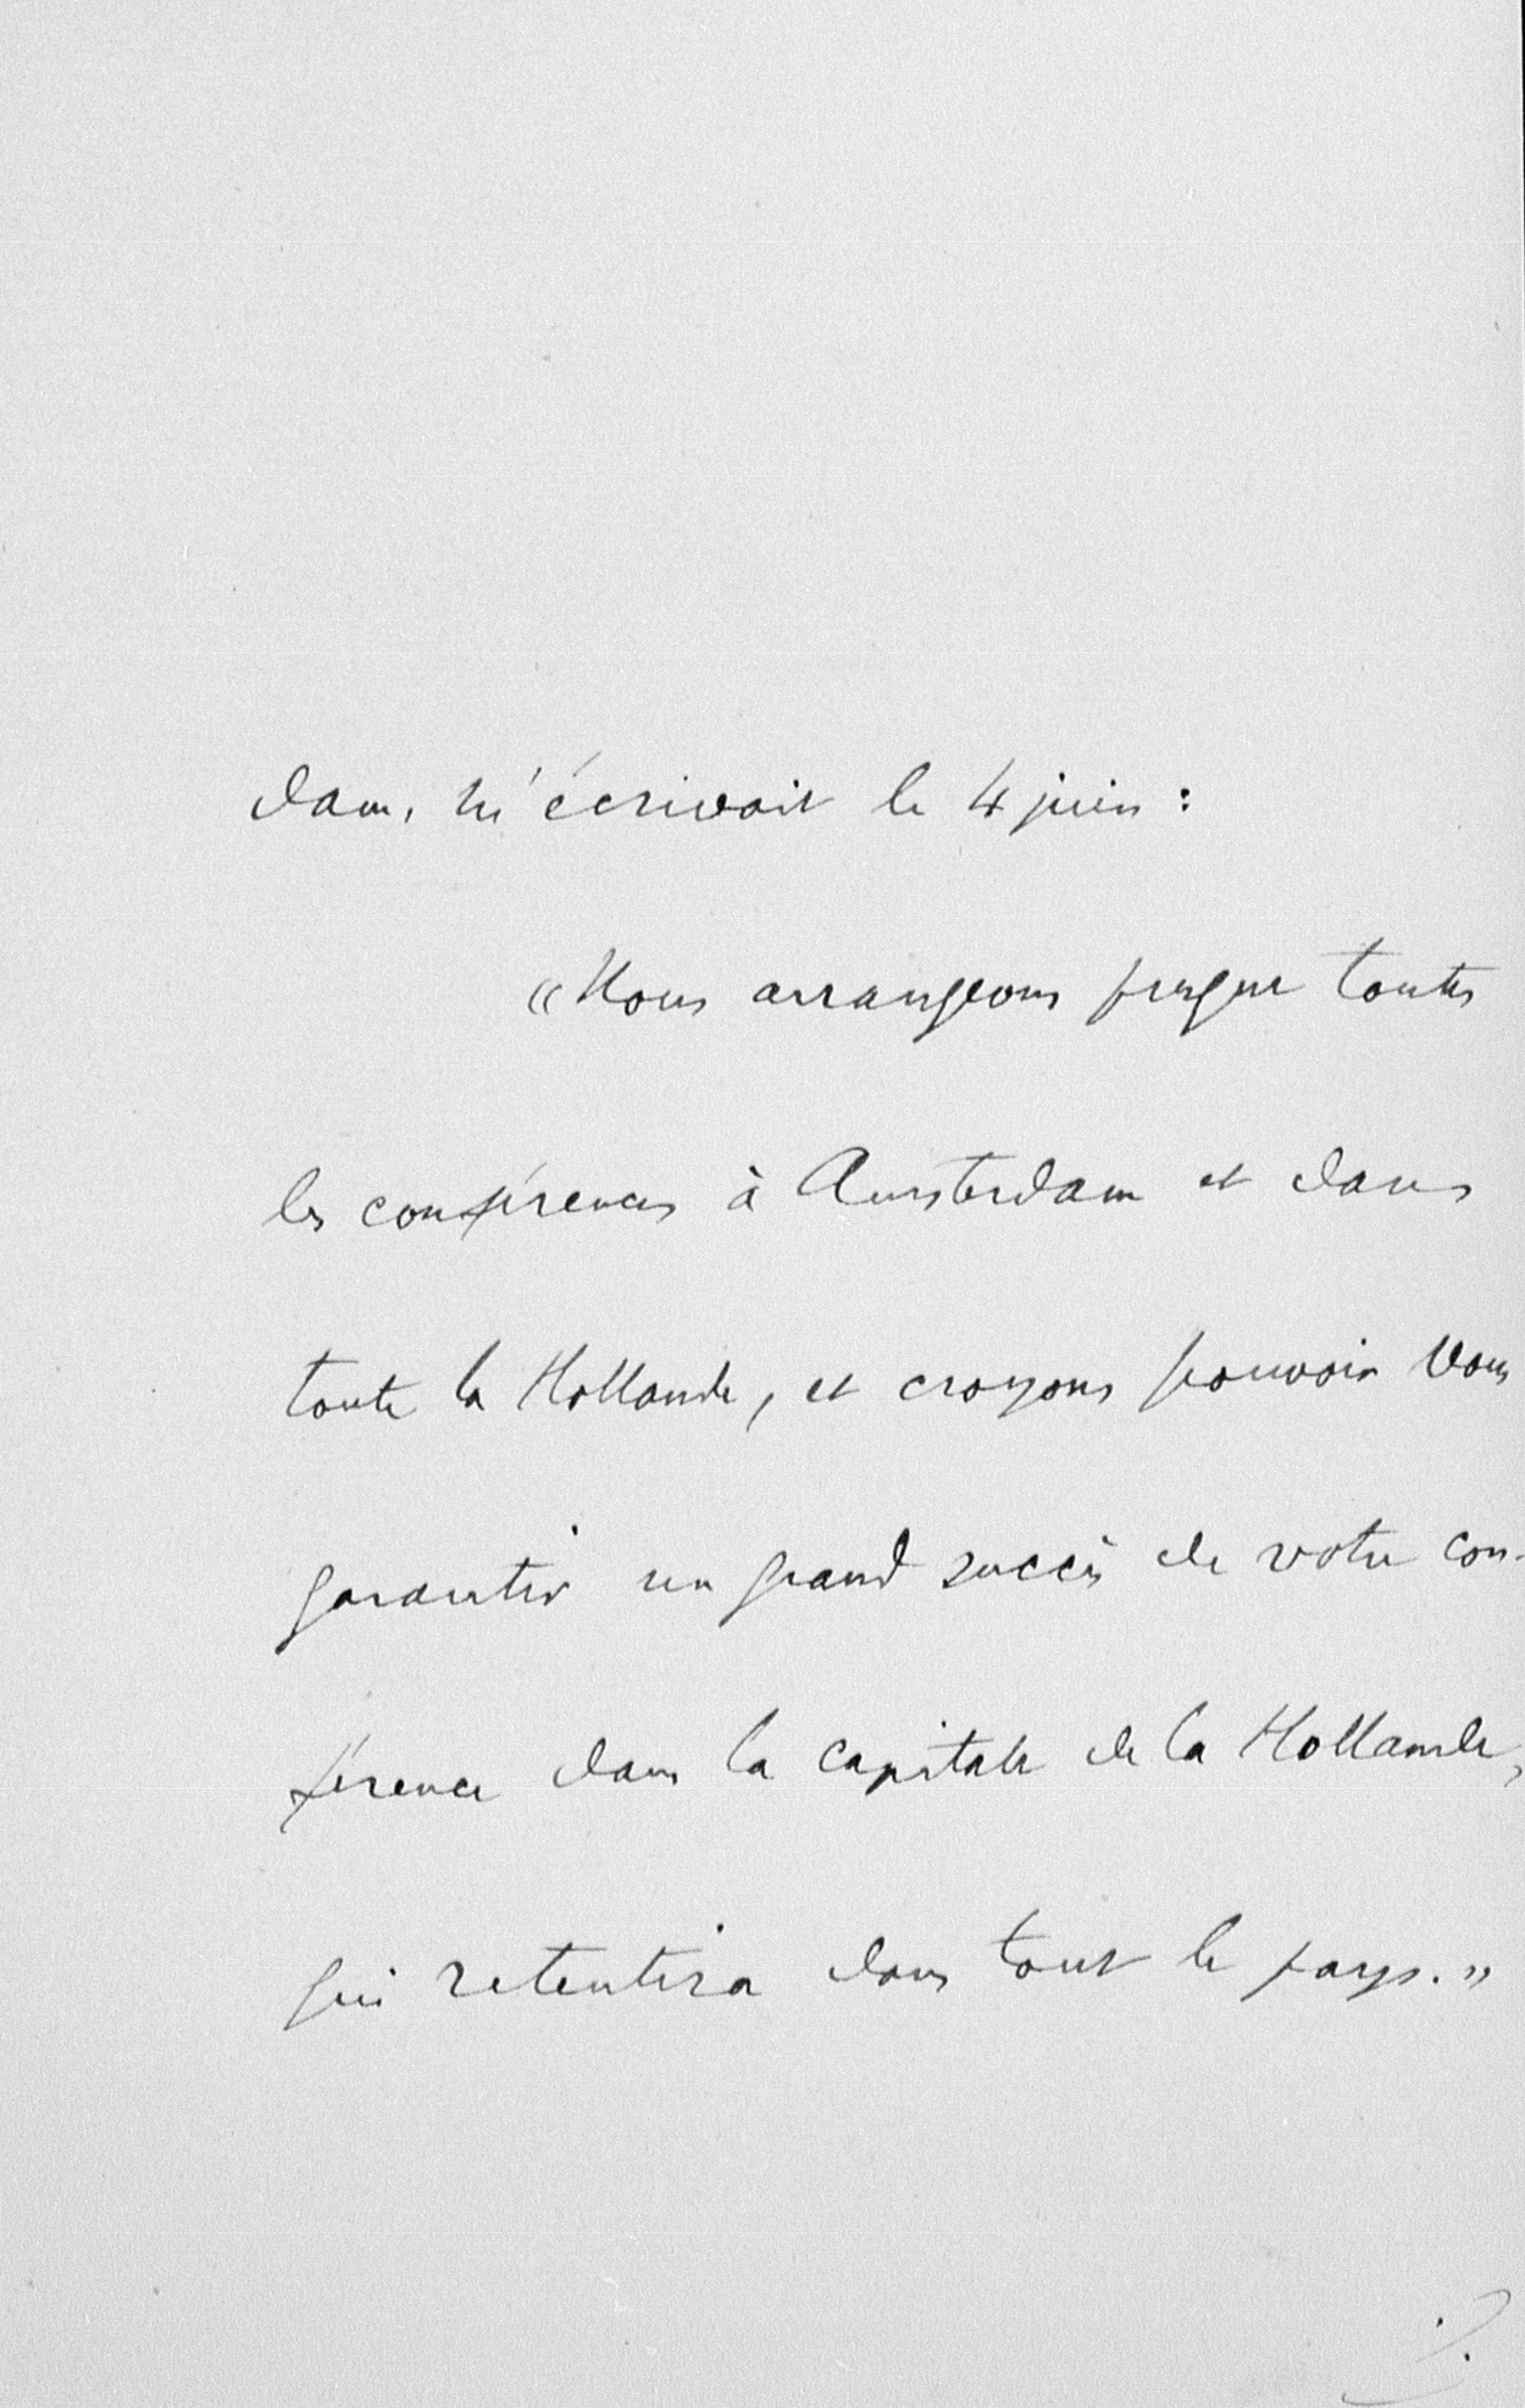 dam, m'écrivait le 4 juin :
«Nous arrangeons presque toutes
les conférences à Amsterdam et dans
toute la Hollande, et croyons pouvoir vous
garantir un grand succès de votre con-
férence dans la capitale de la Hollande,
qui retentira dans tout le pays.»